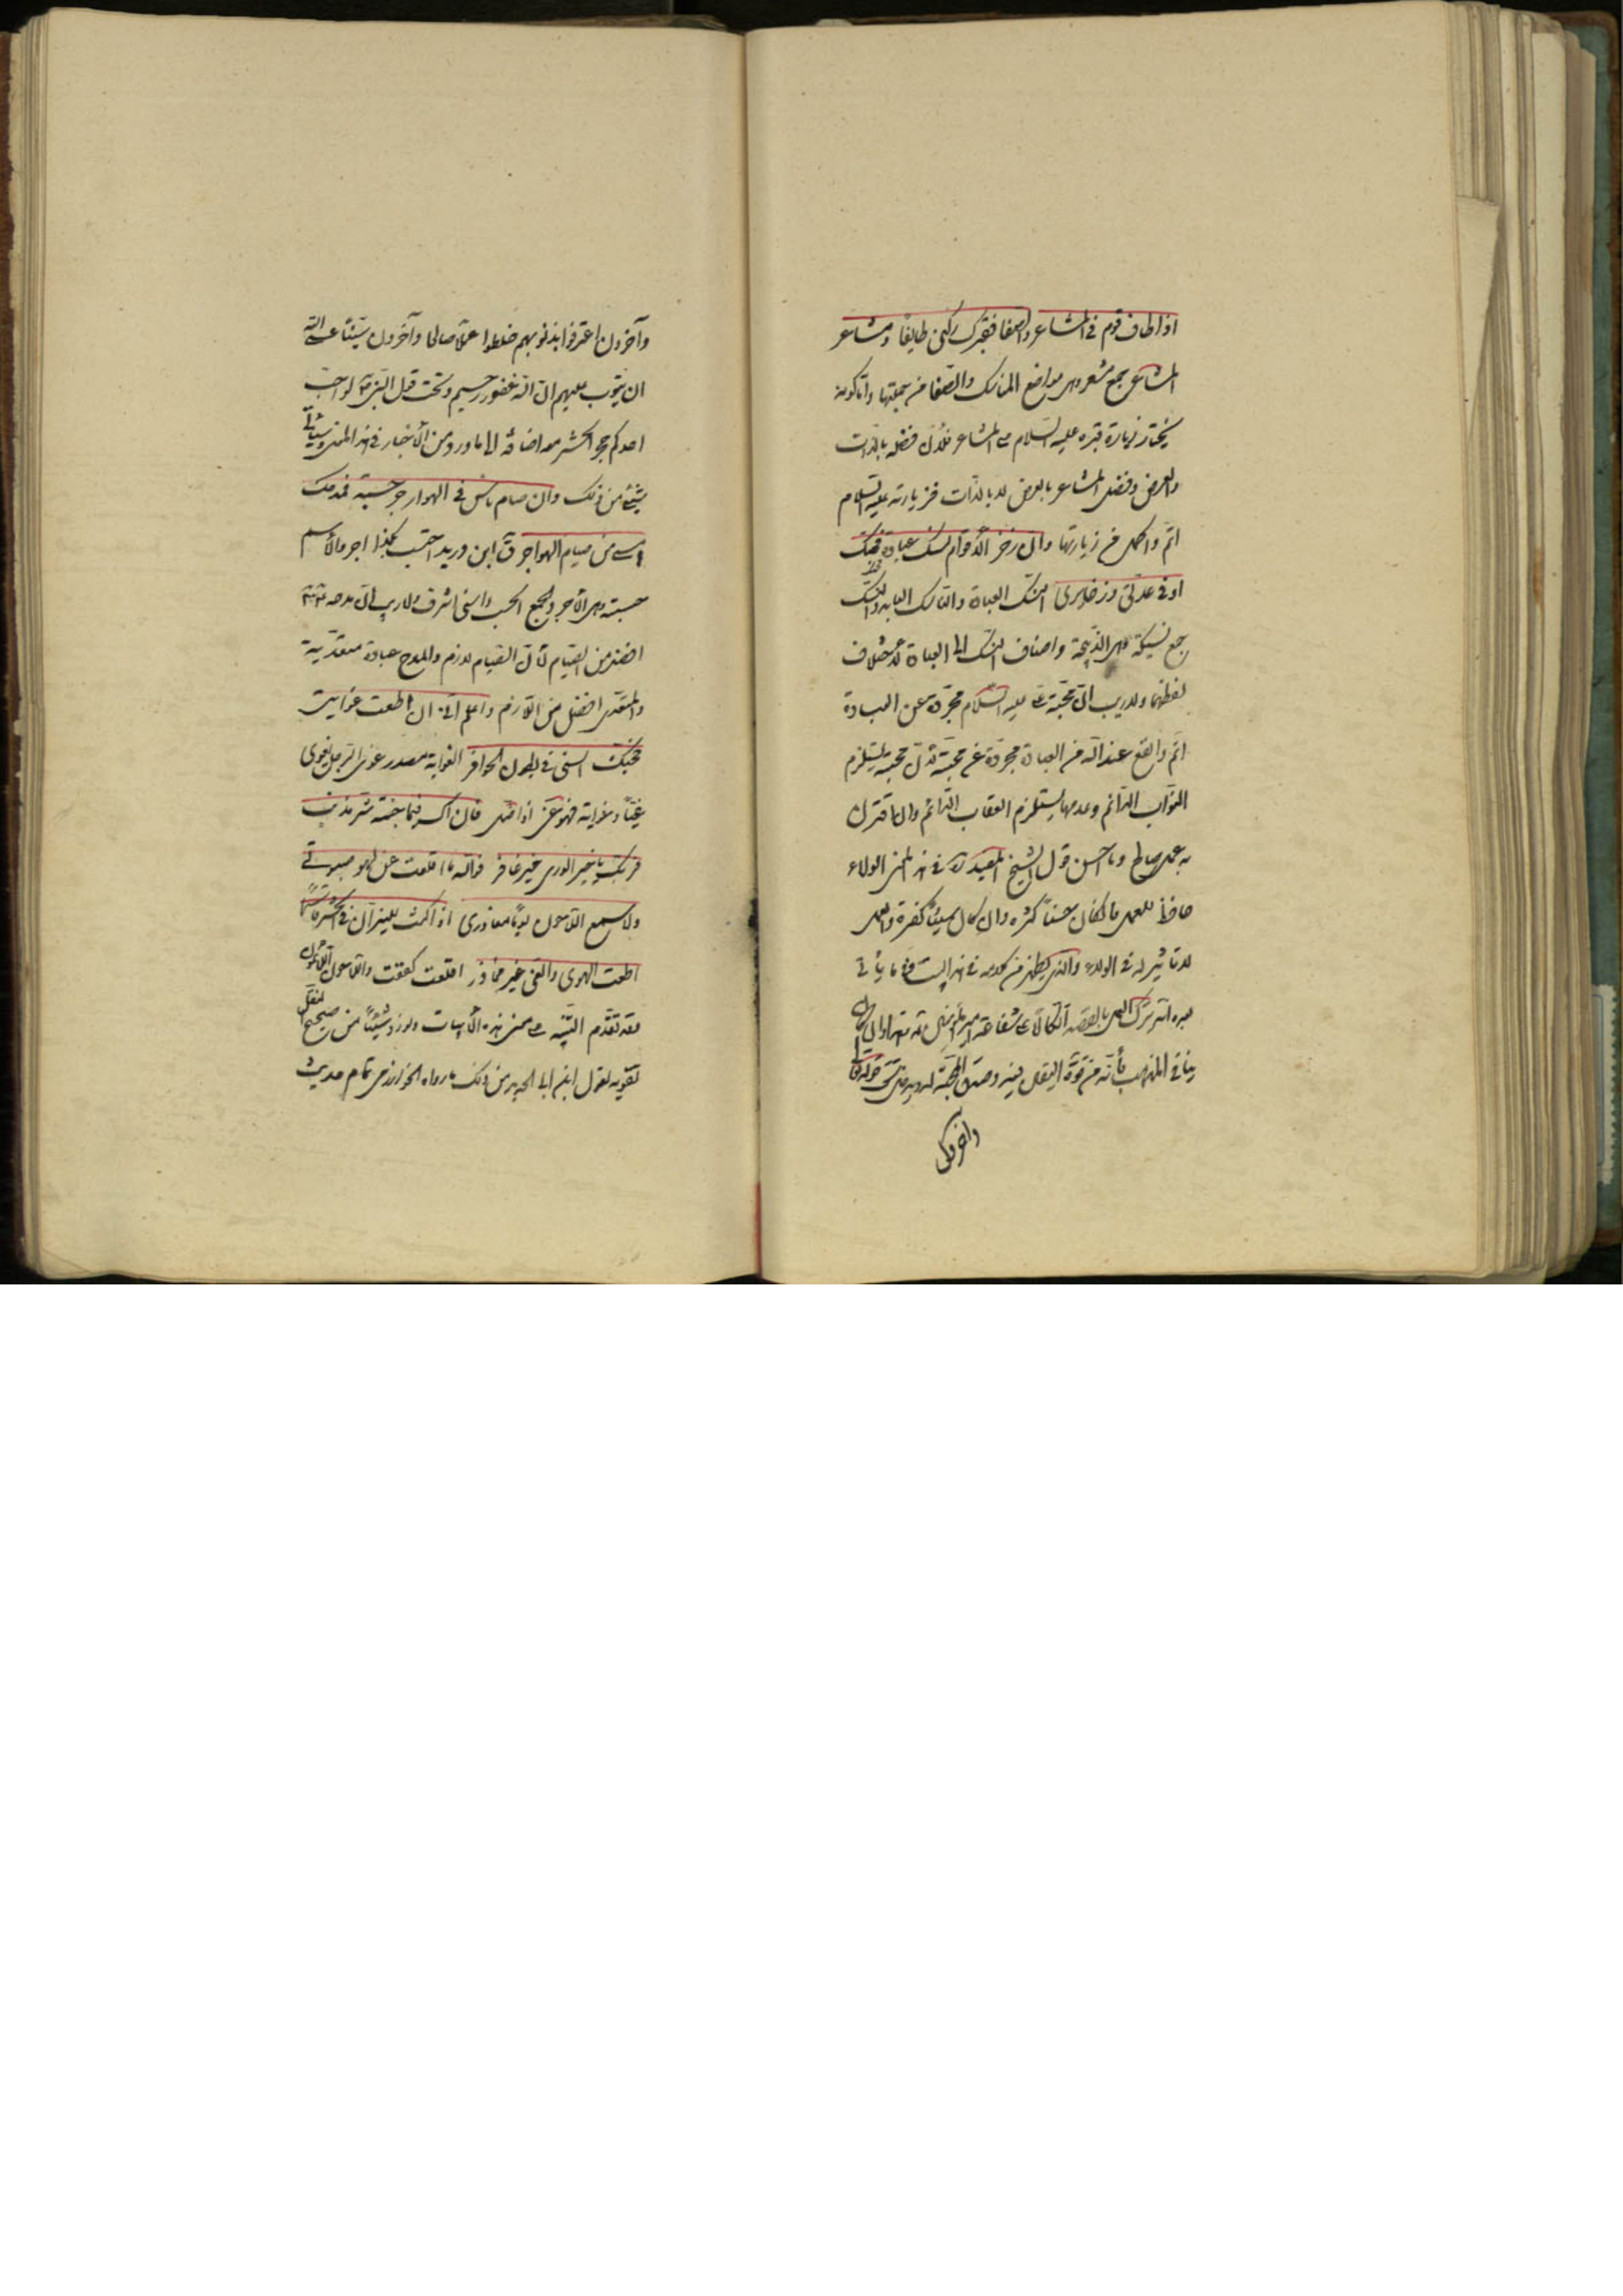 اذا طاف قوم فى المشاعر والصفا فقبرك ركنى طايفا ومشاعر
المشاعر جمع مشعر وهى مواضع المناسك والصفا من جملتها واما كونه
يختار زيارة قبره عليه السلام على المشاعر فلان فضله بالذات
والعرض وفضل المشاعر بالعرض لا بالذات فزيارته عليه السلام
اتم واكمل من زيارتها وان ذخر الاقوام نسك عبادة فحبك
اوفى عدتى وذخايرى النسك العبادة والناسك العابد والنسك
جمع نسيكة وهى الذبيحة واضاف النسك الى العبادة لاختلاف
لفظهما ولا ريب ان محبة على عليه السلام مجردة عن العبادة
اتم وانفع عند الله من العبادة مجردة عن محبته لان محبته يستلزم
الثواب الدائم وعدمها يستلزم العقاب الدائم وان اقترن
به عمل صالح وما احسن قول الشيخ المفيد ره فى هذا المعنى الولاء
حافظ للعمل فان كان حسنا كثره وان كان سيئا كفره والعمل
لا تاثير له فى الولاء والذى يظهر من كلامه فى هذا البيت وفيما يأتى
بعده انه ترك العمل بالقصد اتكالا على شفاعة امير المؤمنين له وهذا وان كان
ينافى المذهب فانه من قوة اليقين وصدق المحبة قوله تعالى
وآخرون
وآخرون اعترفوا بذنوبهم خلطوا عملا صالحا وآخرون سيئا عسى الله
ان يتوب عليهم ان الله غفور رحيم وتحت قول النبى لو احب
احدكم حجر الحشر معه اضافة الى ما ورد من الاخبار فى هذا المعنى وسياتى
شىء من ذلك وان صام ناس فى الهواجر حسبة فمدحك
اسنى من صيام الهواجر ق ابن دريد احتسب بكذا اجر والاسم
حسبة وهى الاجر والجمع الحسب واسنى اشرف ولا ريب فى ان مدحه
افضل من الصيام لان الصيام لازم والمدح عبادة متعدية
والمتعدى افضل من اللازم واعلم انى ان اطعت غوايتى
فحبك انسى فى بطون الحفائر الغواية مصدر غوى الرجل يغوى
غيا وغواية فهو غوى اذا ضل فان اك فيما جئته شر مذنب
فربك يا خير الورى خير غافر فوالله ما اقلعت عن لهو صبوتى
ولا سمع اللاحون يوما معاذرى اذا كنت للنيران فى الحشر قاسما
اطعت الهوى والغى غير محاذر اقلعت كففت واللاحون اللائمون
وقد تقدم التنبيه على معنى هذه الابيات ونورد شيئا من صحيح النقل
تقوية لقول ابن ابى الحديد من ذلك ما رواه الخوارزمى تمام حديث